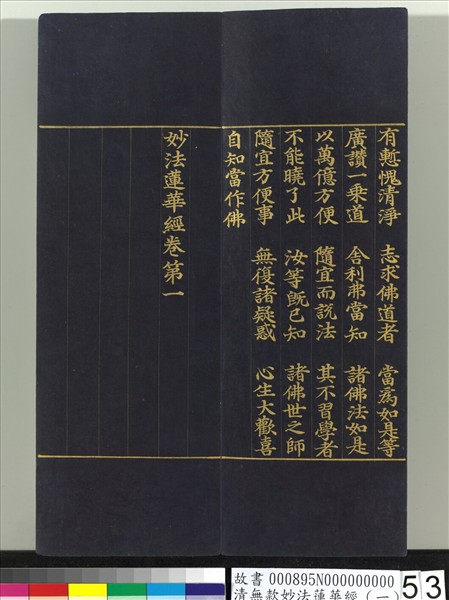 有慙愧清淨 志求佛道者 當為如是等
廣讚一乘道 舍利弗當知 諸佛法如是
以萬億方便 隨宜而說法 其不習學者
不能曉了此 汝等既已知 諸佛世之師
隨宜方便事 無復諸疑惑 心生大歡喜
自知當作佛
妙法蓮華經卷第一
故書 000895N000000000
清無款妙法蓮華經（一）
53